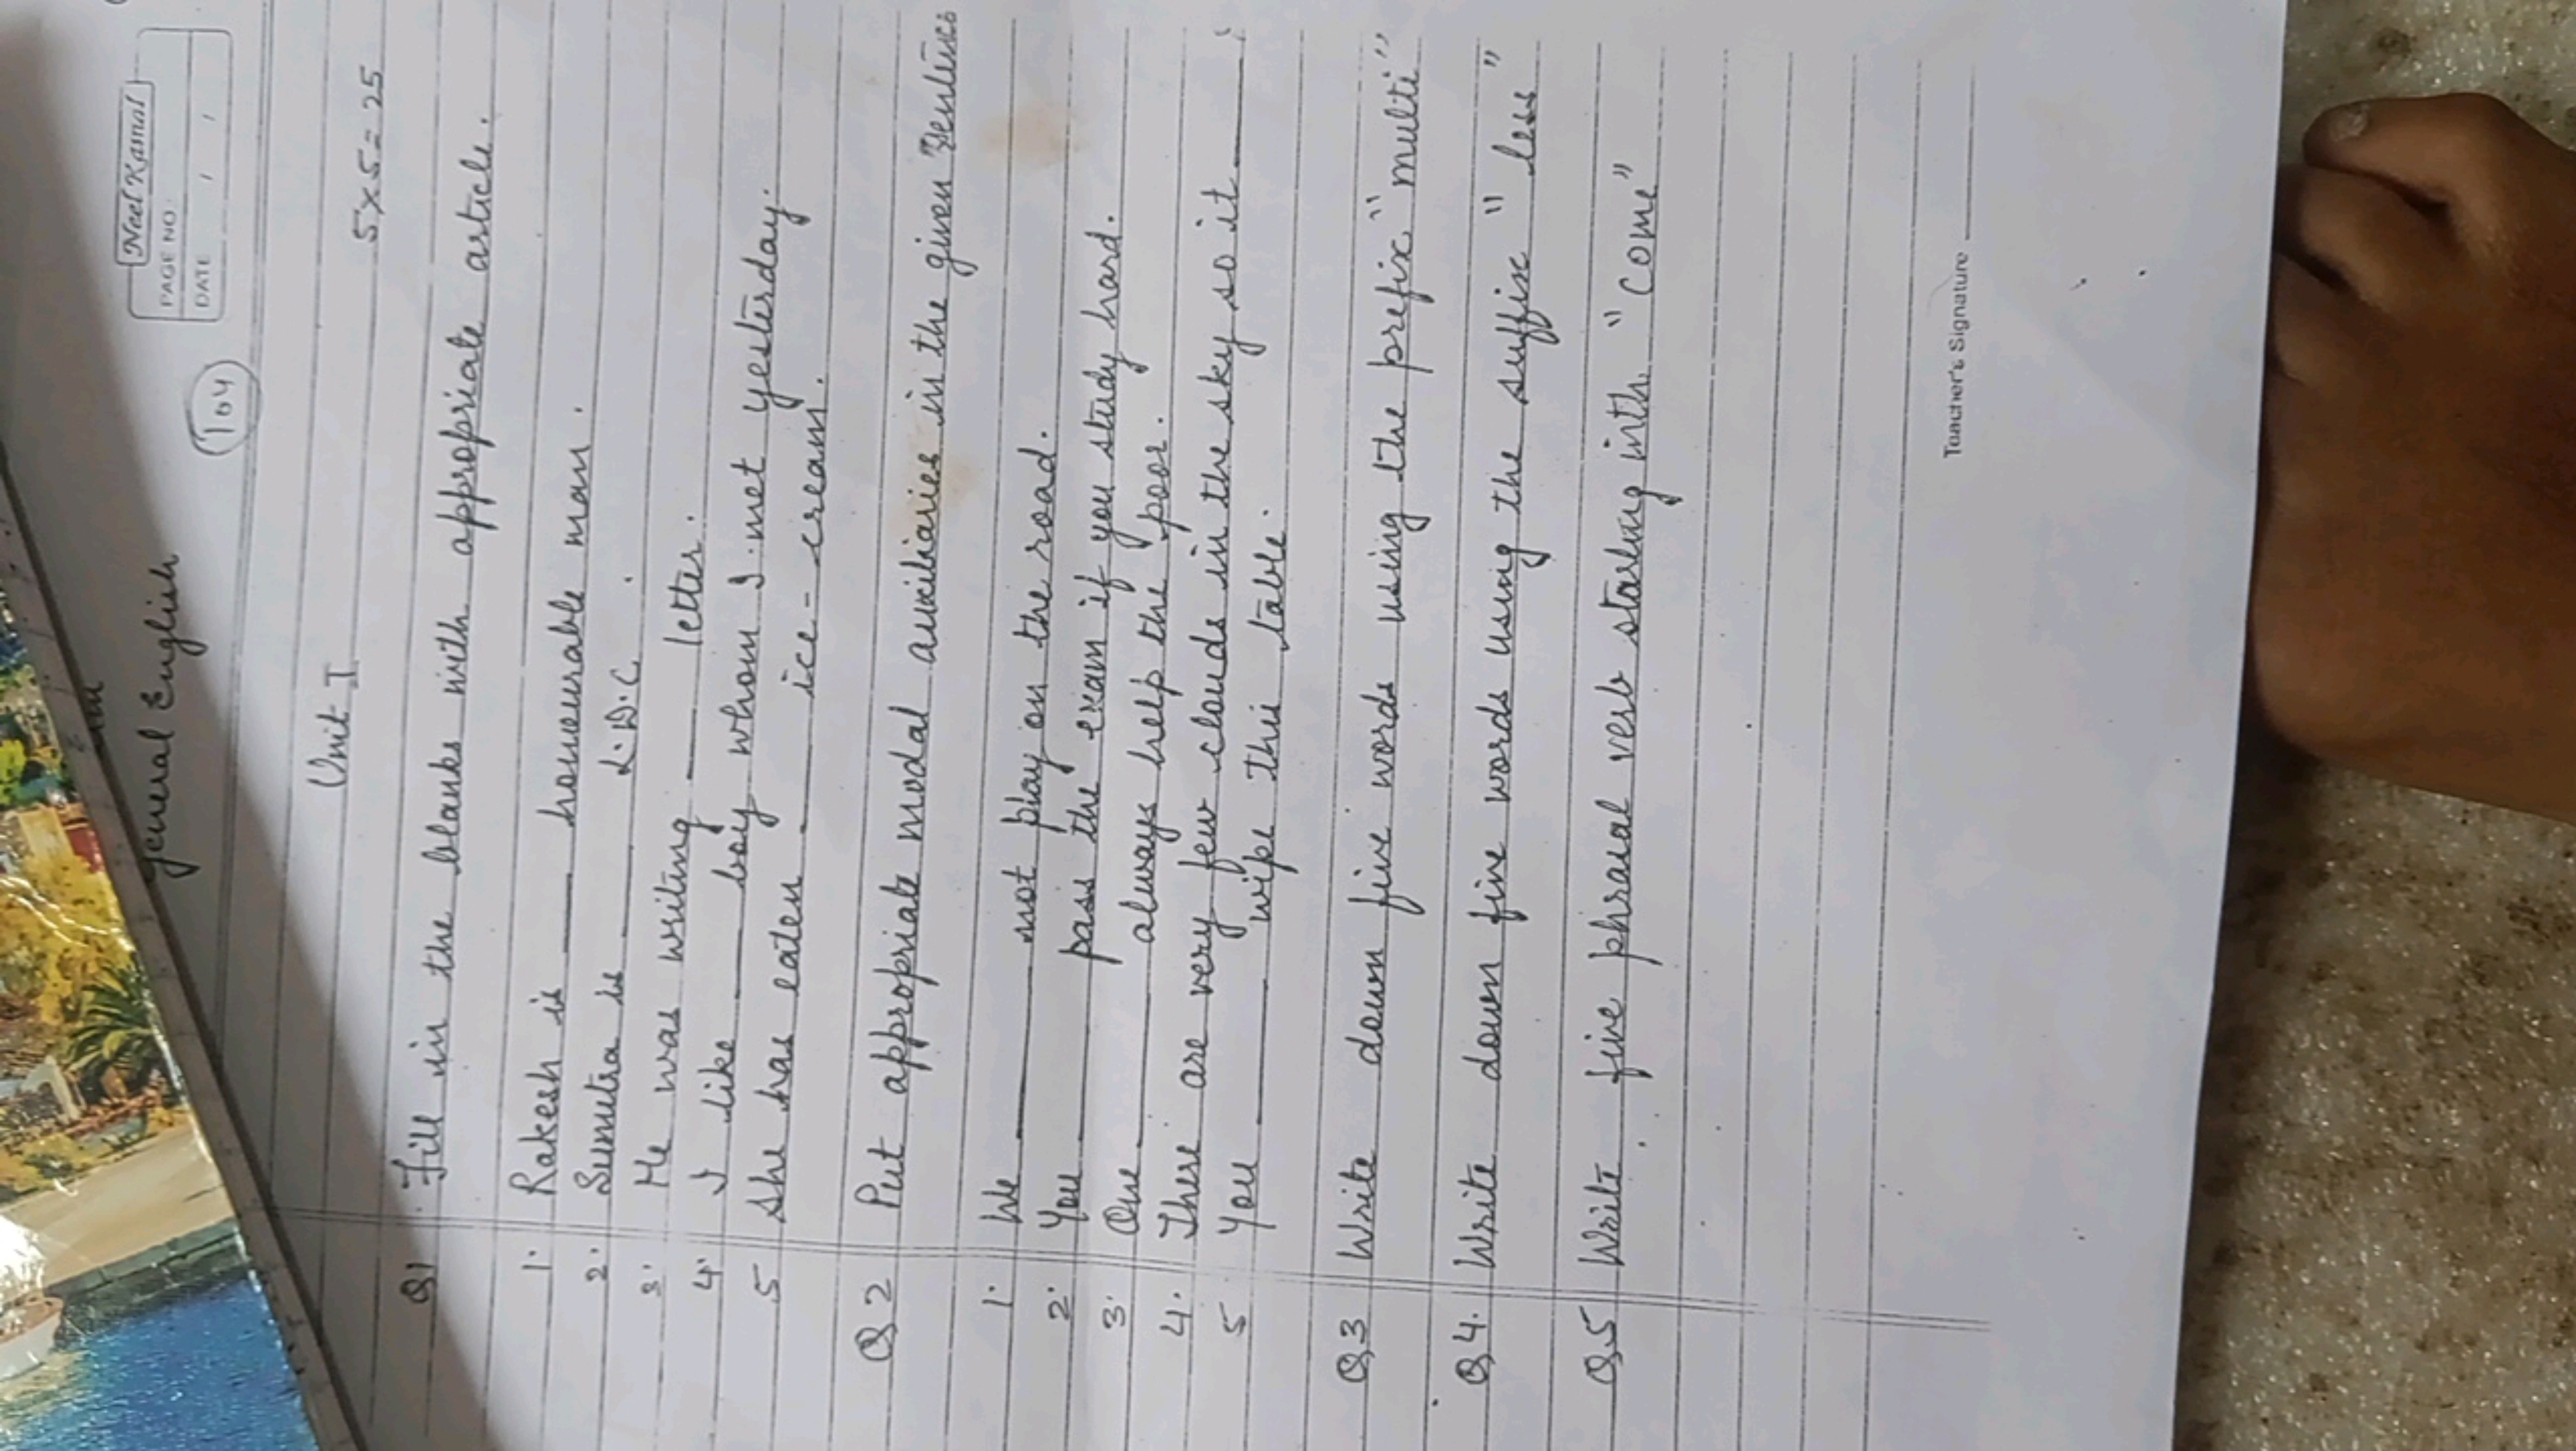 General English
104
Neel Kamal
PAGE NO.
DATE / /
Unit I
5×5=25
Q1 Fill in the blanks with appropriate article.
1. Rakesh is ____ honourable man.
2. Sumitra is ____ L.D.C.
3. He was writing ____ letter.
4. I like ____ boy whom I met yesterday.
5 She has eaten ____ ice-cream.
Q2 Put appropriate modal auxiliaries in the given Sentences
1. We ____ not play on the road.
2. You ____ pass the exam if you study hard.
3. One ____ always help the poor.
4. There are very few clouds in the sky so it ____
5 You ____ wipe this table.
Q3 Write down five words using the prefix "multi"
Q4. Write down five words using the suffix "less"
Q5 Write five phrasal verb starting with "come"
Teacher's Signature